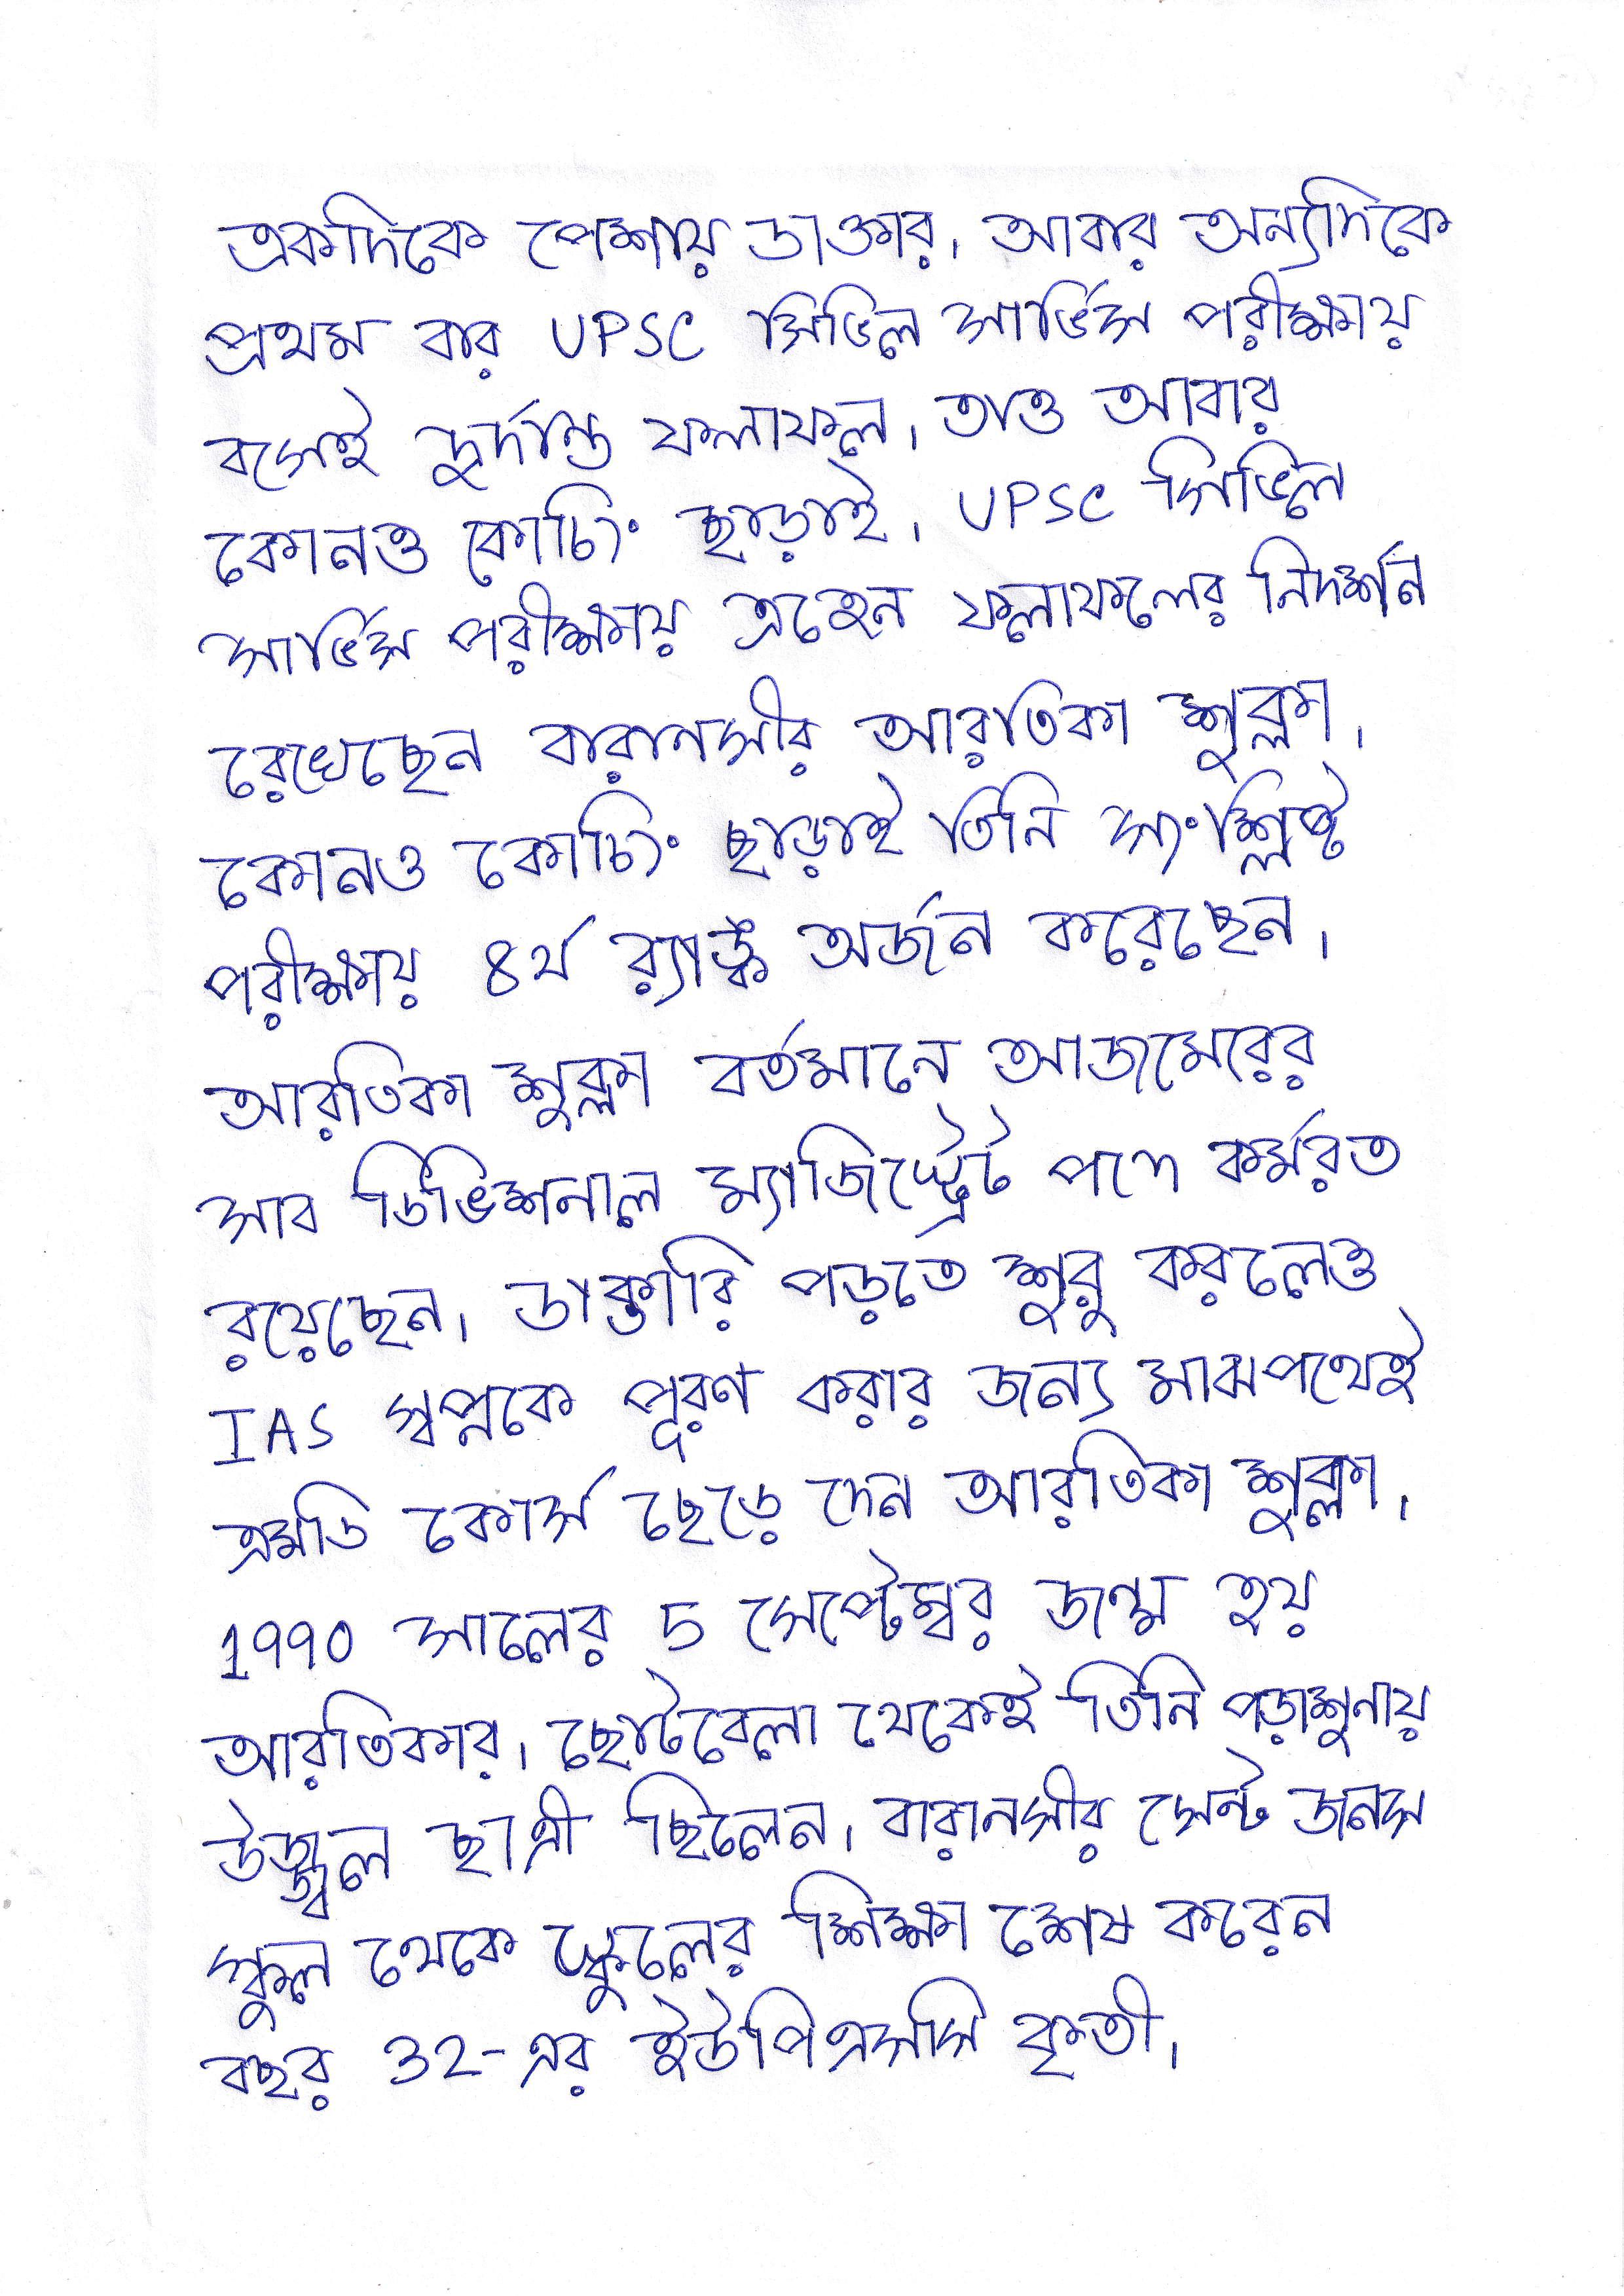 একদিকে পেশায় ডাক্তার, আবার অন্যদিকে
প্রথম বার UPSC সিভিল সার্ভিস পরীক্ষায়
বসেই দুর্দান্ত ফলাফল, তাও আবার
কোনও কোচিং ছাড়াই, UPSC সিভিল
সার্ভিস পরীক্ষায় এহেন ফলাফলের নিদর্শন
রেখেছেন বারানসীর আরতিকা শুক্লা,
কোনও কোচিং ছাড়াই তিনি সংশ্লিষ্ট
পরীক্ষায় ৪র্থ র‍্যাঙ্ক অর্জন করেছেন,
আরতিকা শুক্লা বর্তমানে আজমেরের
সাব ডিভিশনাল ম্যাজিস্ট্রেট পদে কর্মরত
রয়েছেন, ডাক্তারি পড়তে শুরু করলেও
IAS স্বপ্নকে পূরণ করার জন্য মাঝপথেই
এমডি কোর্স ছেড়ে দেন আরতিকা শুক্লা,
1990 সালের 5 সেপ্টেম্বর জন্ম হয়
আরতিকার, ছোটবেলা থেকেই তিনি পড়াশুনায়
উজ্জ্বল ছাত্রী ছিলেন, বারানসীর সেন্ট জনস
স্কুল থেকে স্কুলের শিক্ষা শেষ করেন
বছর 32-এর ইউপিএসসি কৃতী,